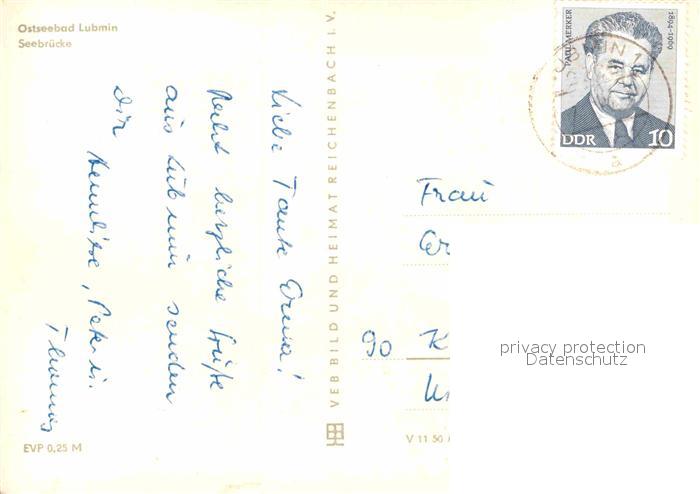 Ostseebad Lubmin
Seebrücke
Liebe Tante Erna!
Recht herzliche Grüße
aus Lubmin senden
Dir
Peter u.
EVP 0,25 M
VEB BILD UND HEIMAT REICHENBACH I. V.
PAUL MERKER
1894-1969
DDR 10
Frau
90 K
V 11 50
privacy protection
Datenschutz